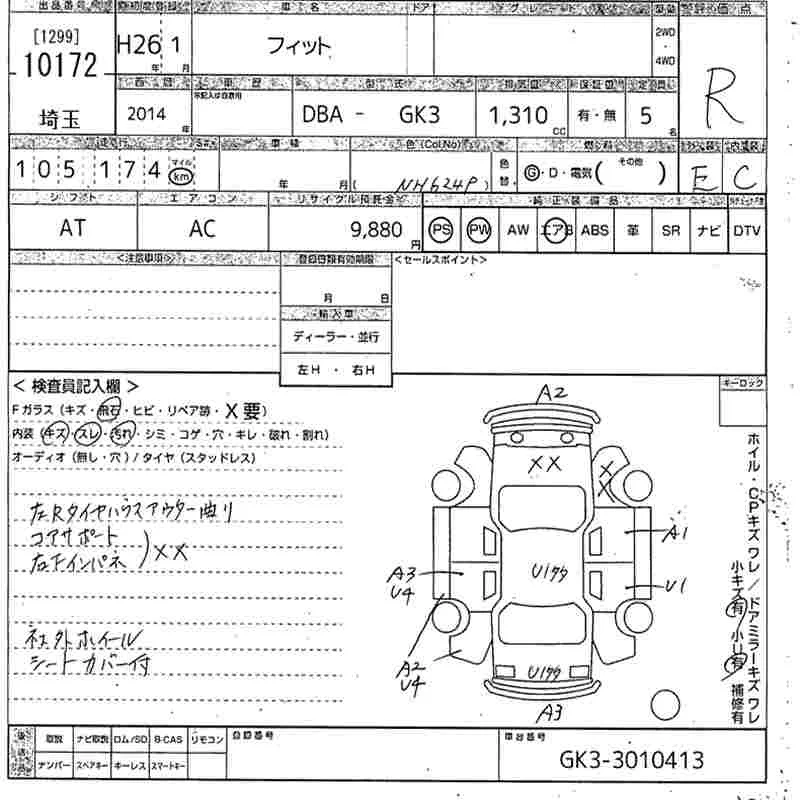 出品番号 初度登録 車名 ドア グレード 型 評価点
[1299]
10172
埼玉
H26年 1月
フィット
2WD
・
4WD
R
西暦 車歴 型式 排気量 保証書 定員
2014年
DBA - GK3
1,310 cc
有・無
5名
走行 車検 色(Col.No) 燃料 外装 内装
105,174
マイル
km
年 月
( NH624P )
色替
G・D・電気( その他 )
E
C
シフト エアコン リサイクル預託金 純正装備品
AT
AC
9,880円
PS PW AW エアB ABS 革 SR ナビ DTV
<注意事項>
登録書類有効期限
<セールスポイント>
月 日
輸入車
ディーラー・並行
左H ・ 右H
< 検査員記入欄 >
Fガラス(キズ・飛石・ヒビ・リペア跡・X要)
内装(キズ・スレ・汚れ・シミ・コゲ・穴・キレ・破れ・割れ)
オーディオ(無し・穴)/タイヤ(スタッドレス)
左Rタイヤハウスアウター曲り
コアサポート
右Fインパネ
)××
社外ホイール
シートカバー付
A2
××
××
A1
U1
U1
A3
U4
A2
U4
U1
A3
キーロック
ホイル・CPキズワレ/ドアミラーキズワレ
小キズ有 小U有 補修有
後送品
取説 ナビ取説 ロム/SD B-CAS リモコン
ナンバー スペアキー キーレス スマートキー
登録番号
車台番号
GK3-3010413